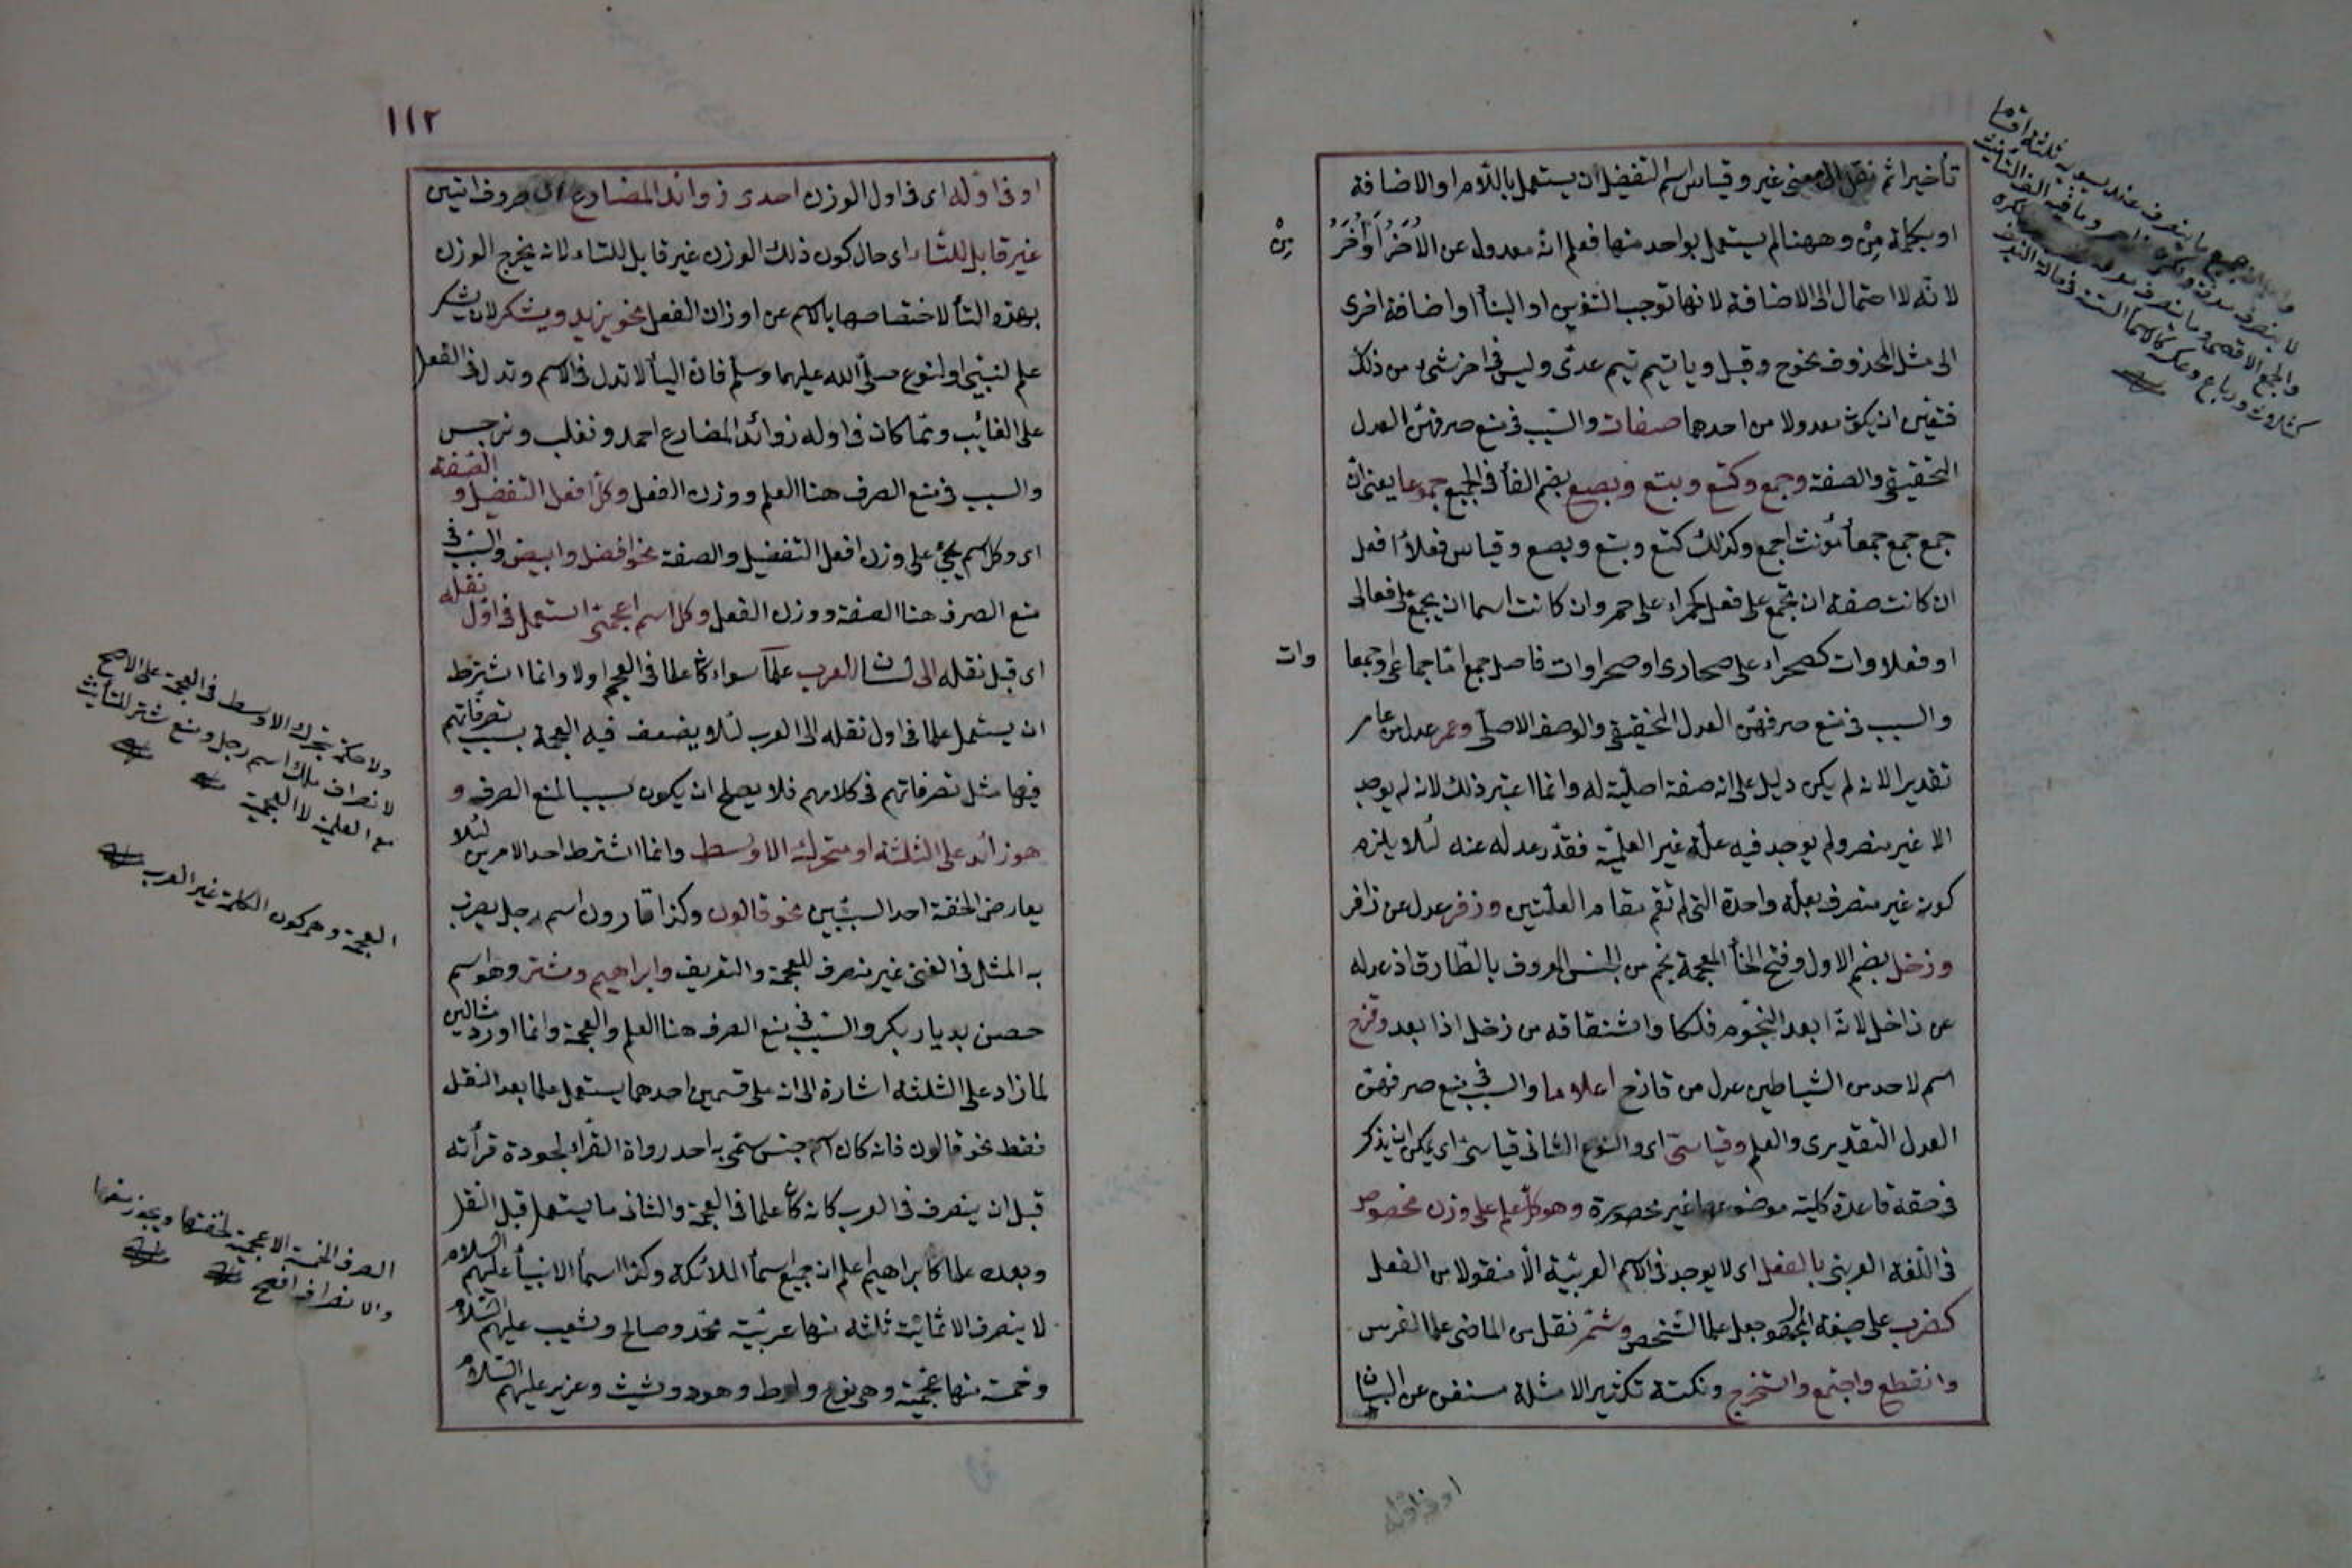 تأخيرا ثم نقل الى معنى غير وقياس اسم التفضيل ان يستعمل باللام او الاضافة
او بكلمة مِنْ وههنا لم يستعمل بواحد منها فعلم انه معدول عن الاُخَرْ اَوْ آخَرُ
مِنْ
لانه لا احتمال الى الاضافة لانها توجب التنوين او البنأ او اضافة اخرى
الى مثل المحذوف نحو ح وقبل ويا تيم تيم عدىّ وليس فى اخر شىء من ذلك
فتعين ان يكون معدولا من احدهما صفات والسبب فى منع صرفهن العدل
التحقيقى والصفة وجمع وكتع وبتع وبصع بضم الفأ فى الجميع جموعا يعنى ان
جمع جمع جمعأ مؤنث اجمع وكذلك كتع وبتع وبصع وقياس فعلاء افعل
ان كانت صفة ان تجمع على فعل كحمراء على حمر وان كانت اسما ان يجمع على فعالى
او فعلاوات كصحراء على صحارى او صحراوات فاصل جمع اما جماعى او جمعا
وات
والسبب فى منع صرفهن العدل التحقيقى والوصف الاصلى وعمر عدل من عامر
تقديرا لانه لم يكن دليل على انه صفة اصلية له وانما اعتبر ذلك لانه لم يوجد
الا غير منصر ولم يوجد فيه علة غير العلمية فقدّر عدله عنه لئلا يلزم
كونه غير منصرف بعلة واحدة التى لم تقم مقام العلتين وزفر عدل عن زافر
وزحل بضم الاول وفتح الخأ المعجمة نجم من الخنس المعروف بالطارق اذ عدله
عن زاحل لانه ابعد النجوم فلكا واشتقاقه من زحل اذا بعد وقزح
اسم لاحد من الشياطين عدل من قازح اعلاما والسبب فى منع صرفهن
العدل التقديرى والعلم وقياسىّ اى والنوع الثانى قياسىّ اى يمكن ان يذكر
فى حقه قاعدة كلية موضوعها غير محصورة وهو كل علم على وزن مخصوص
فى اللغة العربى بالفعل اى لا يوجد فى الاسم العربية الا منقولا من الفعل
كضرب على صيغة المجهول جعل علما لشخص وشمّر نقل من الماضى علما لفرس
وانقطع واجتمع واستخرج ونكتة تكثير الامثلة مستغن عن البيان
او فى اوله
١١٢
او فى اوله اى فى اول الوزن احدى زوائد المضارع اى حروف اتين
غير قابل للتاء اى حال كون ذلك الوزن غير قابل للتاء لانه يخرج الوزن
بهذه التأ لاختصاصها بالاسم عن اوزان الفعل نحو يزيد ويشكر لان يشكر
علم لنبينا او لنوح صلى الله عليهما وسلم فان اليأ لا تدل فى الاسم وتدل فى الفعل
على الغائب ومما كان فى اوله زوائد المضارع احمد وتغلب ونرجس
والسبب فى منع الصرف هنا العلم ووزن الفعل وكل افعل التفضيل و الصفة
اى وكل اسم يجئ على وزن افعل التفضيل والصفة نحو افضل وابيض والسبب فى
منع الصرف هنا الصفة ووزن الفعل وكل اسم اعجمى استعمل فى اول نقله
اى قبل نقله الى لسان العرب علماً سواء كان علما فى العجم اولا وانما اشترط
ان يستعمل علما فى اول نقله الى العرب لئلا يضعف فيه العجمة بسبب تصرفاتهم
فيها مثل تصرفاتهم فى كلامهم فلا يصلح ان يكون سببا لمنع الصرف و
هو زائد على الثلثة او متحرك الاوسط وانما اشترط احد الامرين لئلا
يعارض الخفة احد السببين نحو قالون وكذا قارون اسم رجل يضرب
به المثل فى الغنى غير منصرف للعجمة والتعريف وابراهيم وشتر وهو اسم
حصن بديار بكر والسبب فى منع الصرف هنا العلم والعجمة وانما اورد مثالين
لما زاد على الثلثة اشارة الى انه على قسمين احدهما يستعمل علما بعد النقل
فقط نحو قالون فانه كان اسم جنس سمّى به احد رواة القراء لجودة قرأته
قبل ان يتصرف فى العرب كانه كان علما فى العجمة والثانى ما يستعمل قبل النقل
وبعده علما كابراهيم اعلم ان جميع اسمأ الملائكة وكذا اسمأ الانبيأ عليهم السلام
لا ينصرف الا ثمانية ثلثة منها عربية محمد وصالح وشعيب عليهم السلام
وخمسة منها عجمية وهى نوح ولوط وهود وشيث وعزير عليهم السلام
ولا حكمة بتحرك الاوسط فى العجمة على الاصح
لانصراف ملك اسم رجل ومنع شتر للتأنيث
مع العلمية لا العجمة
العجمة وهو كون الكلمة غير العرب
الصرف الخمسة الاعجمية لخفتها ويجوز منعها
والانصراف افصح